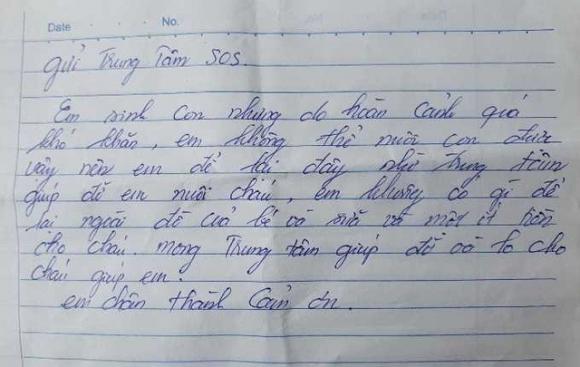 Date No.
gửi Trung Tâm SOS.
Em sinh con nhưng do hoàn cảnh quá
khó khăn, em không thể nuôi con được
vậy nên em để lại đây nhờ trung tâm
giúp đỡ em nuôi cháu, em không có gì để
lại ngoài đồ của bé và sữa và một ít tiền
cho cháu. mong Trung tâm giúp đỡ và lo cho
cháu giúp em.
em chân thành cảm ơn.